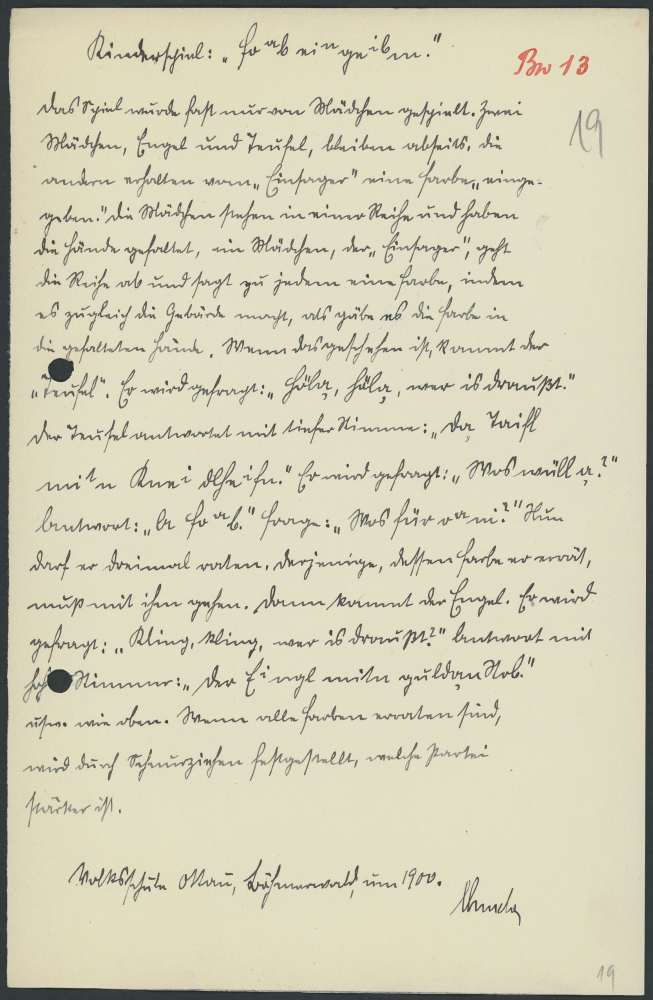 Kinderspiel: „Foab eingeibm."
Bw 13
19
Das Spiel wurde fast nur von Mädchen gespielt. Zwei
Mädchen, Engel und Teufel, bleiben abseits, die
andern erhalten vom „Einsager" eine Farbe „einge-
geben." Die Mädchen stehen in einer Reihe und haben
die Hände gefaltet, ein Mädchen, der „Einsager", geht
die Reihe ab und sagt zu jedem eine Farbe, indem
es zugleich die Gebärde macht, als gäbe es die Farbe in
die gefalteten Hände. Wenn das geschehen ist, kommt der
„Teufel". Er wird gefragt: „Höla, höla, wer is draußt."
Der Teufel antwortet mit tiefer Stimme: „Da Taifl
Er wird gefragt: „Wos wüll a?"
Antwort: „A Foab." Frage: „Wos für oani?" Nun
darf er dreimal raten. Derjenige, dessen Farbe er errät,
muß mit ihm gehen. Dann kommt der Engel. Er wird
gefragt: „Kling, kling, wer is draußt?" Antwort mit
Stimme: „Der Eingl mitn guldan Stob."
usw. wie oben. Wenn alle Farben erraten sind,
wird durch Schnurziehen festgestellt, welche Partei
stärker ist.
Volksschule Ottau, Böhmerwald, um 1900.
19